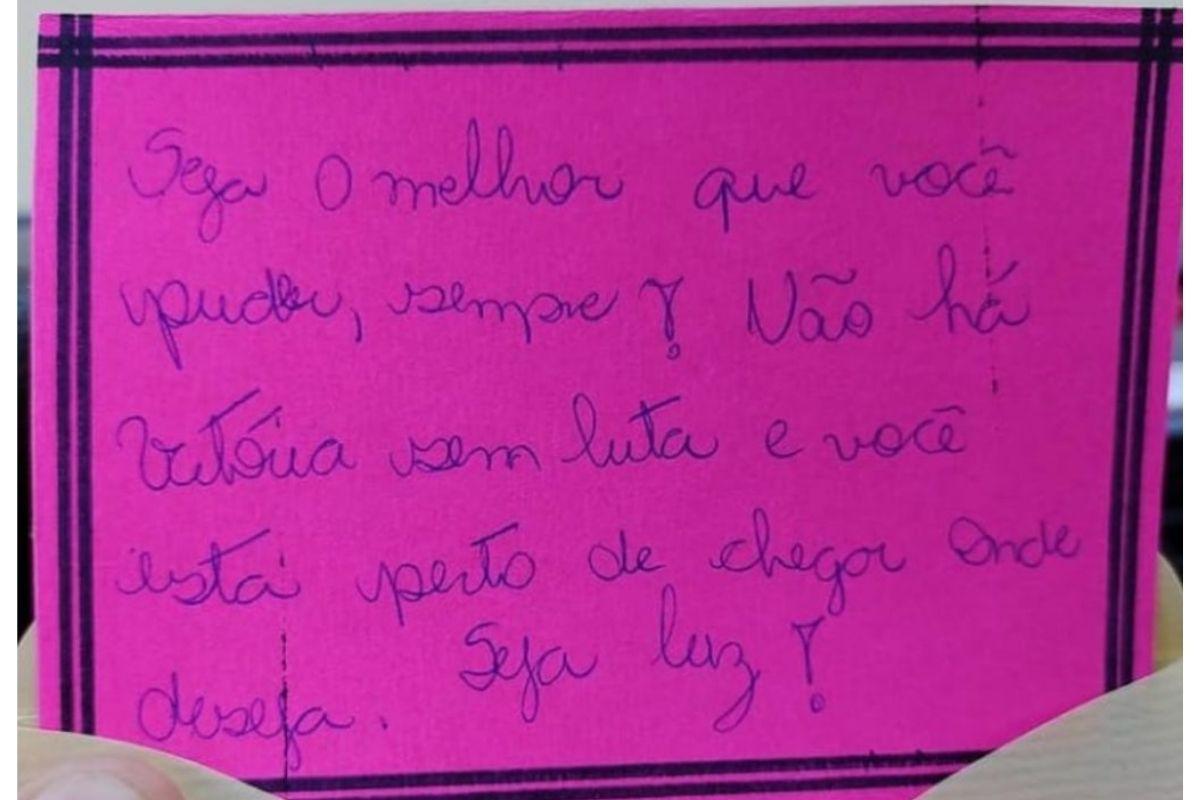 Seja O melhor que você
puder, sempre! Não há
Vitória sem luta e você
está perto de chegar onde
deseja. Seja luz!